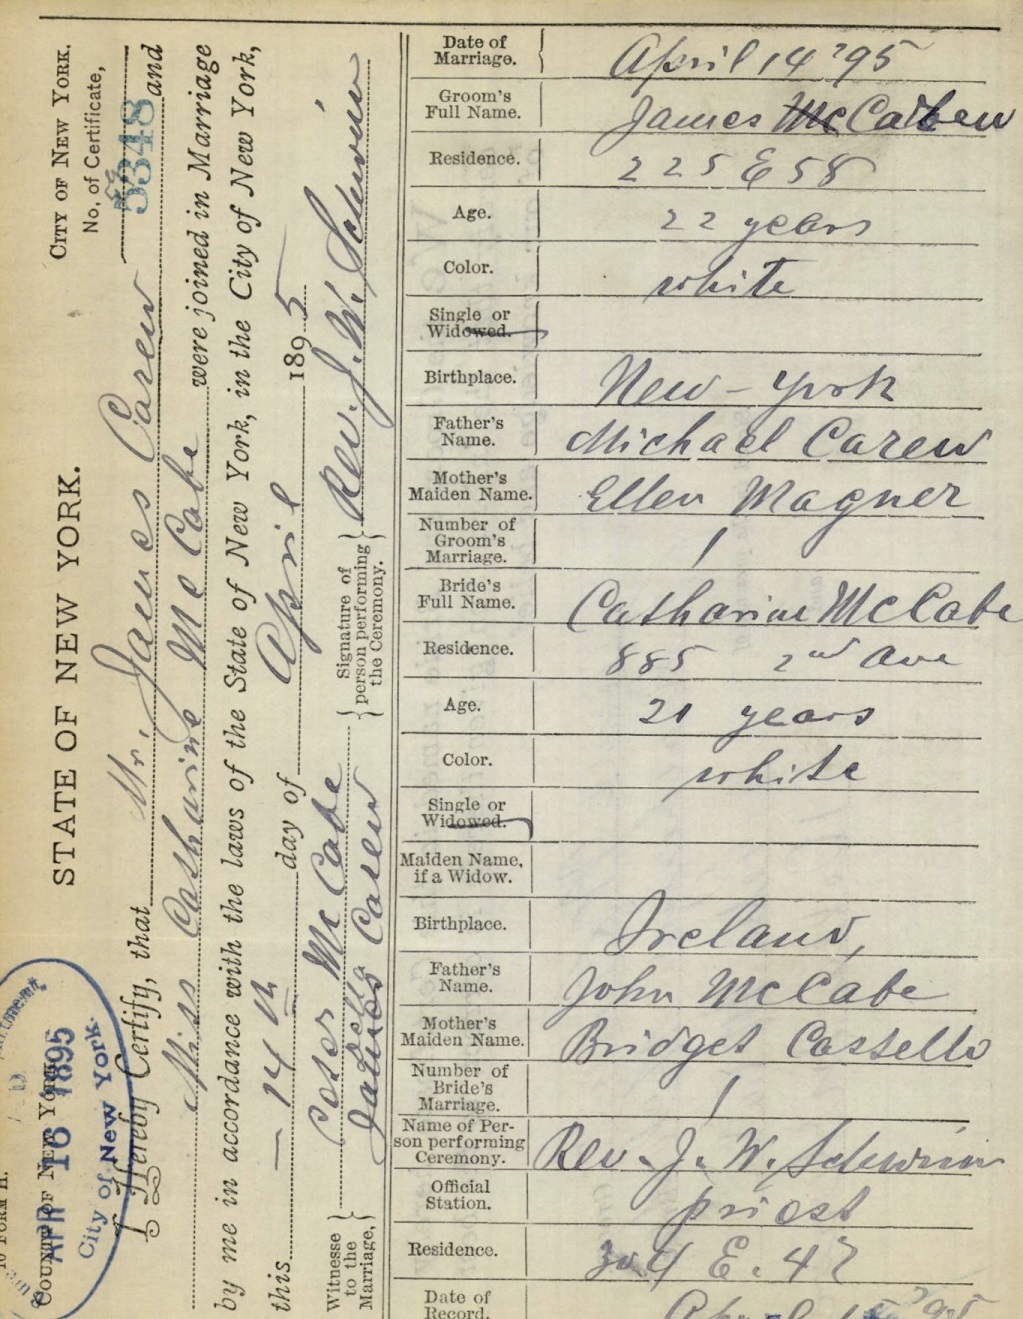 CITY OF NEW YORK.
No. of Certificate,
5348
STATE OF NEW YORK.
COUNTY OF NEW YORK,
APR 16 1895
City of New York.
I Hereby Certify, that Mr. James Carew and
Miss Catharine McCabe were joined in Marriage
by me in accordance with the laws of the State of New York, in the City of New York,
this 14th day of April 1895
Witnesse to the Marriage,
McCabe
James Carew
Signature of person performing the Ceremony.
Rev. J. W. Schwinn
Date of Marriage. April 14 '95
Groom's Full Name. James McCabe Carew
Residence. 225 E 58
Age. 22 years
Color. white
Single or Widowed.
Birthplace. New-York
Father's Name. Michael Carew
Mother's Maiden Name. Ellen Magner
Number of Groom's Marriage. 1
Bride's Full Name. Catharine McCabe
Residence. 885 2nd Ave
Age. 21 years
Color. white
Single or Widowed.
Maiden Name, if a Widow.
Birthplace. Ireland,
Father's Name. John McCabe
Mother's Maiden Name. Bridget Costello
Number of Bride's Marriage. 1
Name of Person performing Ceremony. Rev. J. W. Schwinn
Official Station. priest
Residence. 304 E. 47
Date of Record. April '95